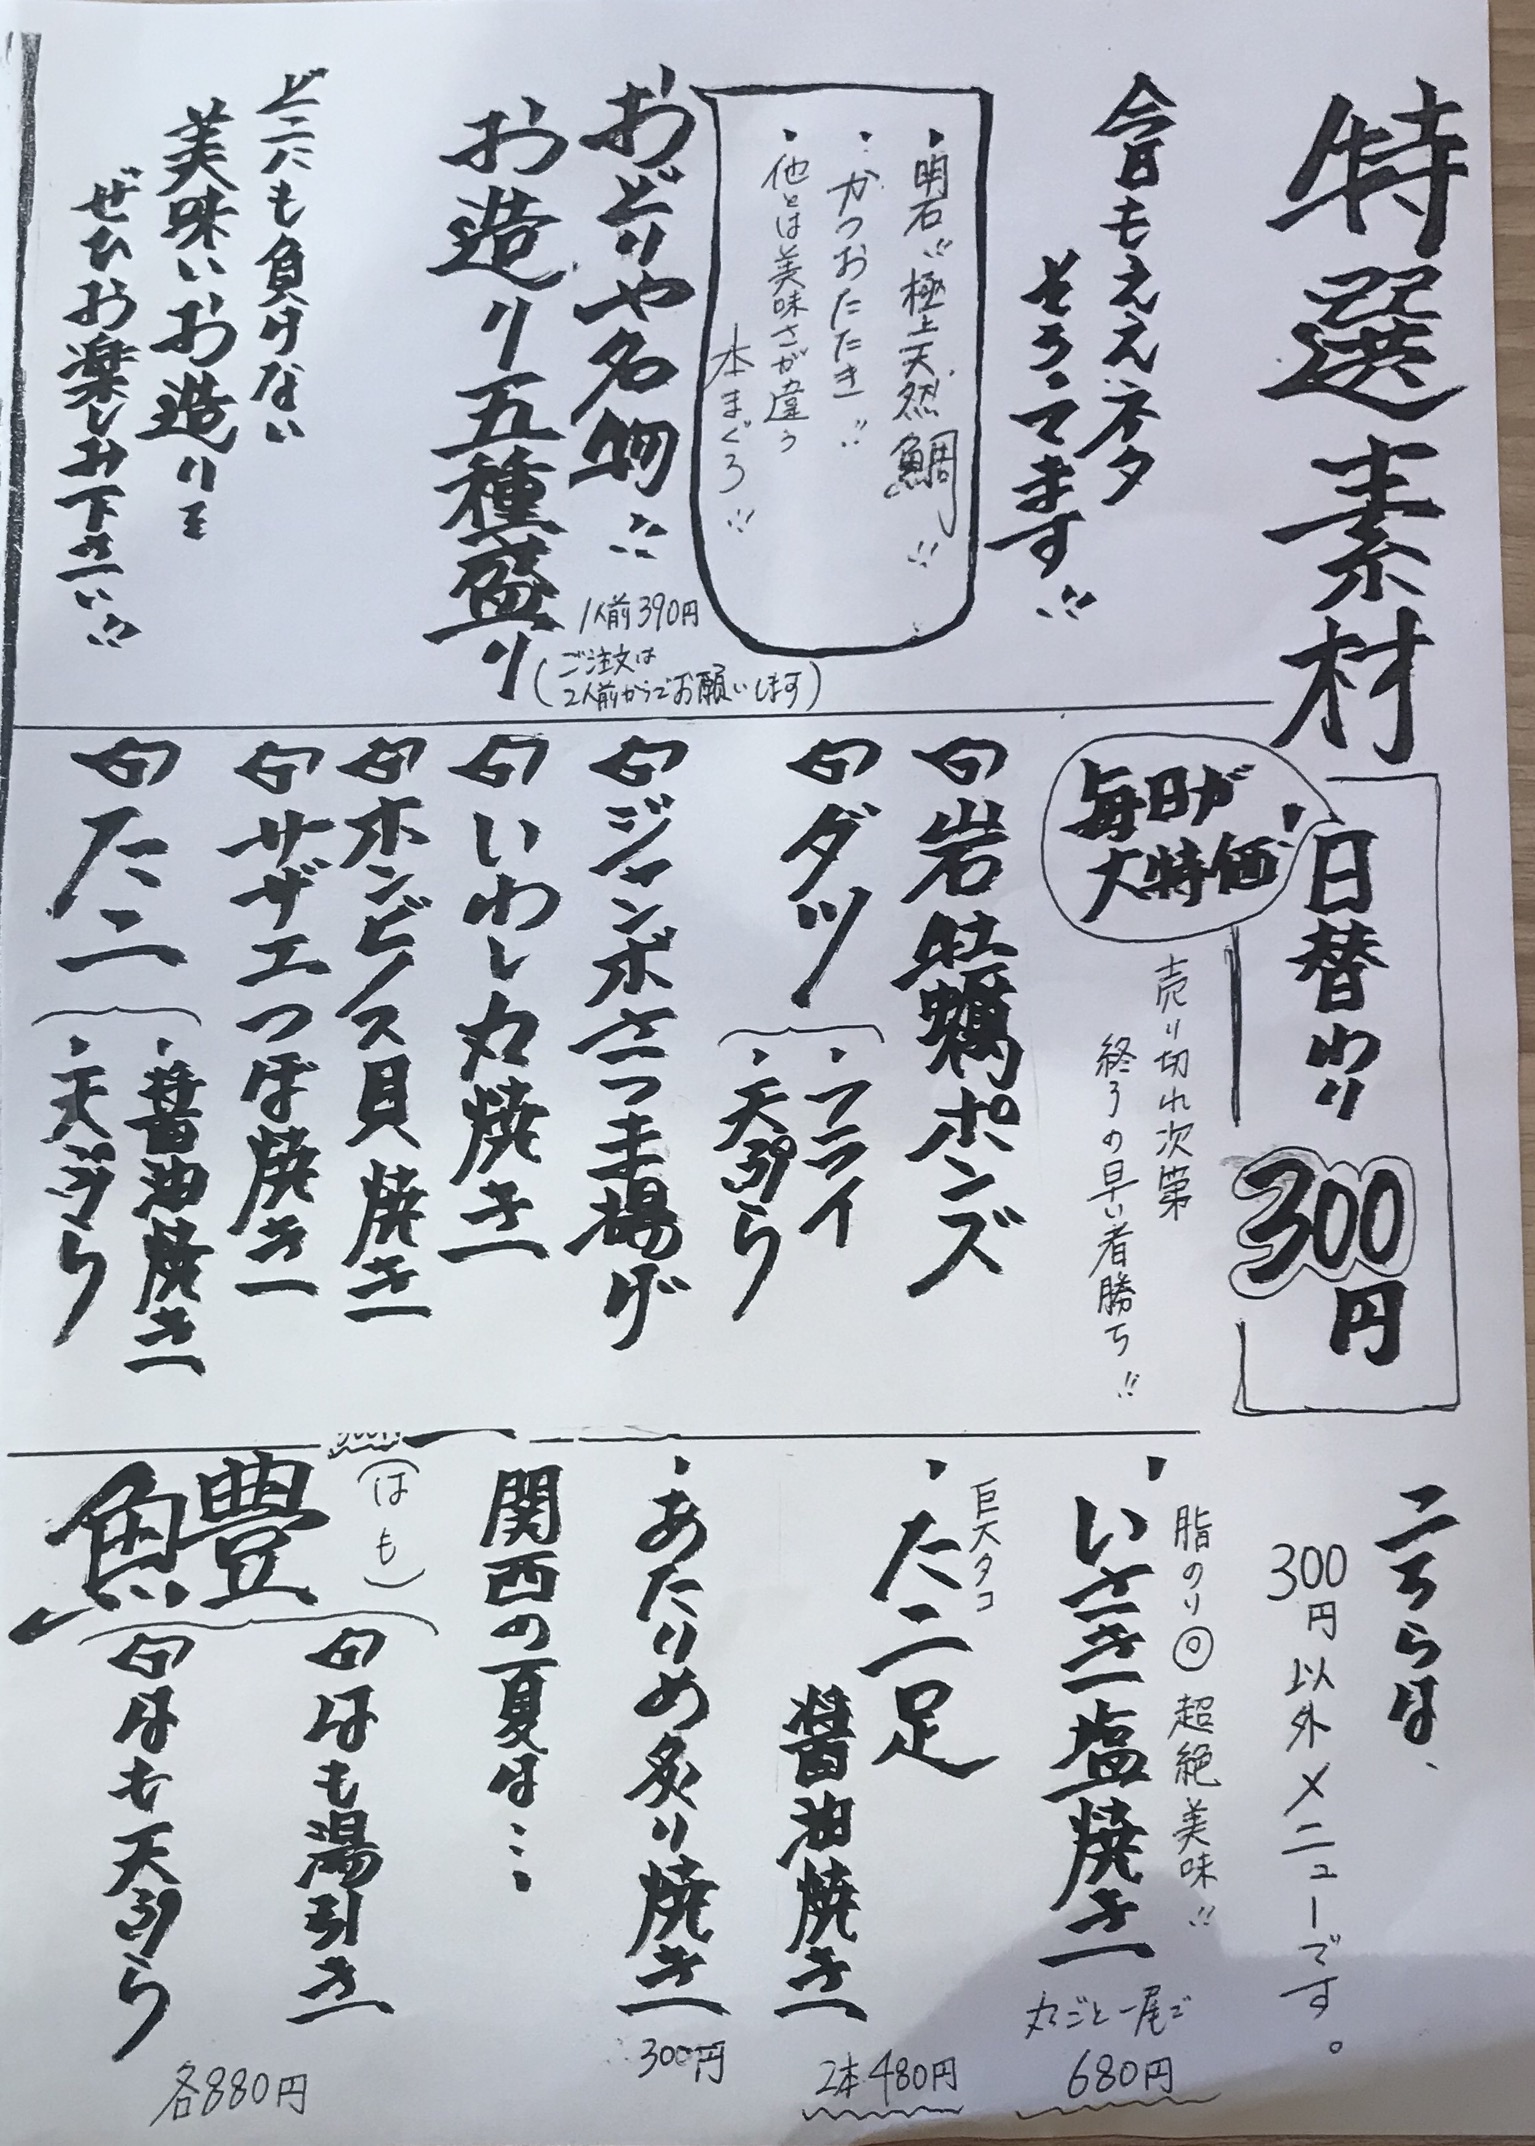 特選素材
今日もええネタ
そろってます!!
・明石!!極上天然鯛!!
・かつおたたき!!
・他とは美味さが違う
本まぐろ!!
おどりや名物!!
お造り五種盛り
1人前390円
(ご注文は
2人前からでお願いします)
どこにも負けない
美味いお造りを
ぜひお楽しみ下さい!!
日替わり300円
毎日が
大特価!
売り切れ次第
終うの早い者勝ち!!
岩牡蠣ポンズ
ダツ
・フライ
・天ぷら
ジャンボさつま揚げ
いわし丸焼き
ホンビノス貝焼き
サザエつぼ焼き
たこ
・醤油焼き
・天ぷら
こちらは、
300円以外メニューです。
脂のり◎超絶美味!!
・いさき塩焼き
丸ごと一尾で
680円
巨大タコ
・たこ足
醤油焼き
2本480円
・あたりめ炙り焼き
300円
関西の夏は…
(はも)
鱧
はも湯引き
はも天ぷら
各880円